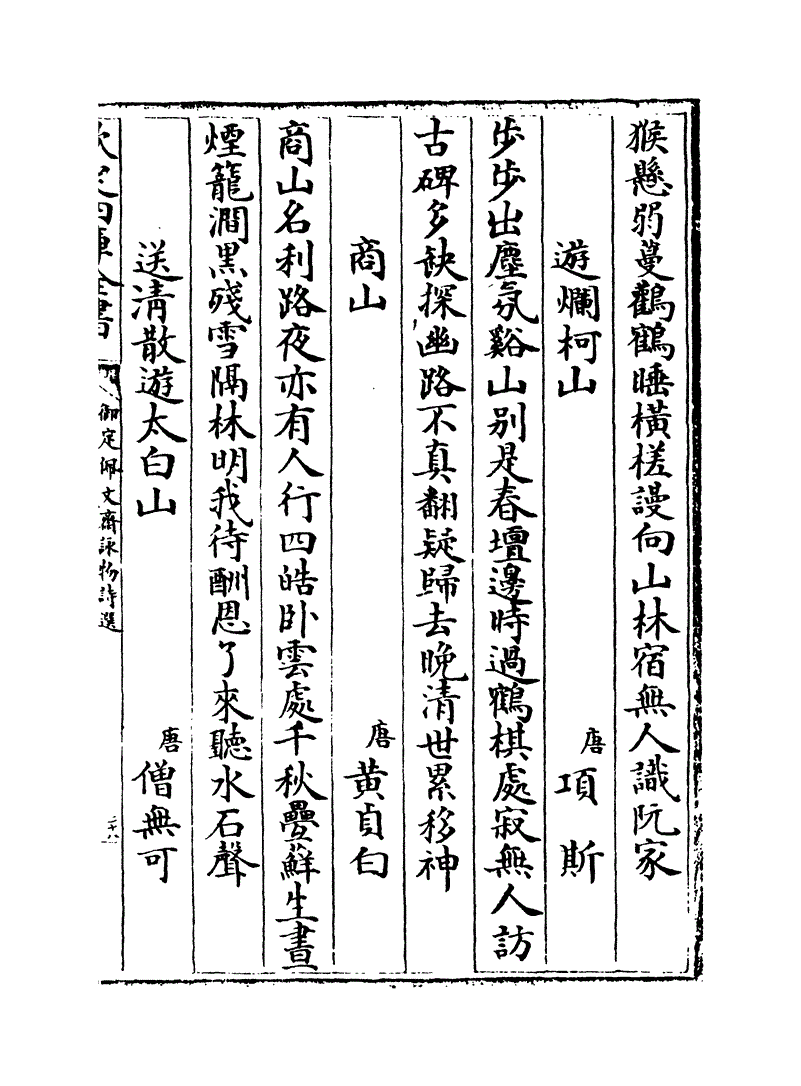 猴懸弱蔓鸛鶴睡橫槎謾向山林宿無人識阮家
遊爛柯山 唐 項斯
步步出塵氛谿山別是春壇邊時過鶴棋處寂無人訪
古碑多缺探幽路不真翻疑歸去晚清世累移神
商山 唐 黃貞白
商山名利路夜亦有人行四皓卧雲處千秋疊蘚生晝
煙籠澗黑殘雪隔林明我待酬恩了來聽水石聲
送清散遊太白山 唐 僧無可
欽定四庫全書 御定佩文齋詠物詩選 二十八